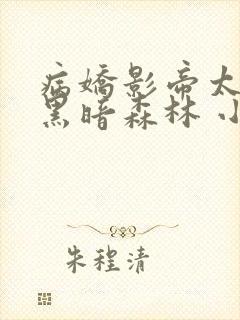 病嬌影帝太
黑暗森林 小
朱程清